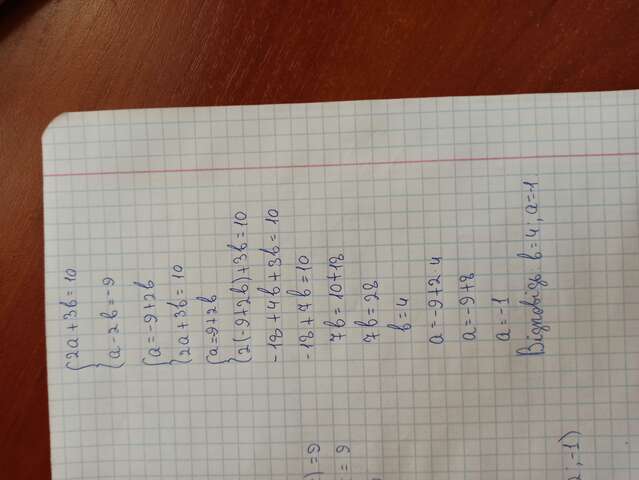 {2a+3b=10
{a-2b=-9
{a=-9+2b
{2a+3b=10
{a=9+2b
{2(-9+2b)+3b=10
-18+4b+3b=10
-18+7b=10
7b=10+18
7b=28
b=4
a=-9+2·4
a=-9+8
a=-1
Відповідь: b=4; a=-1.
)=9
=9
;-1)